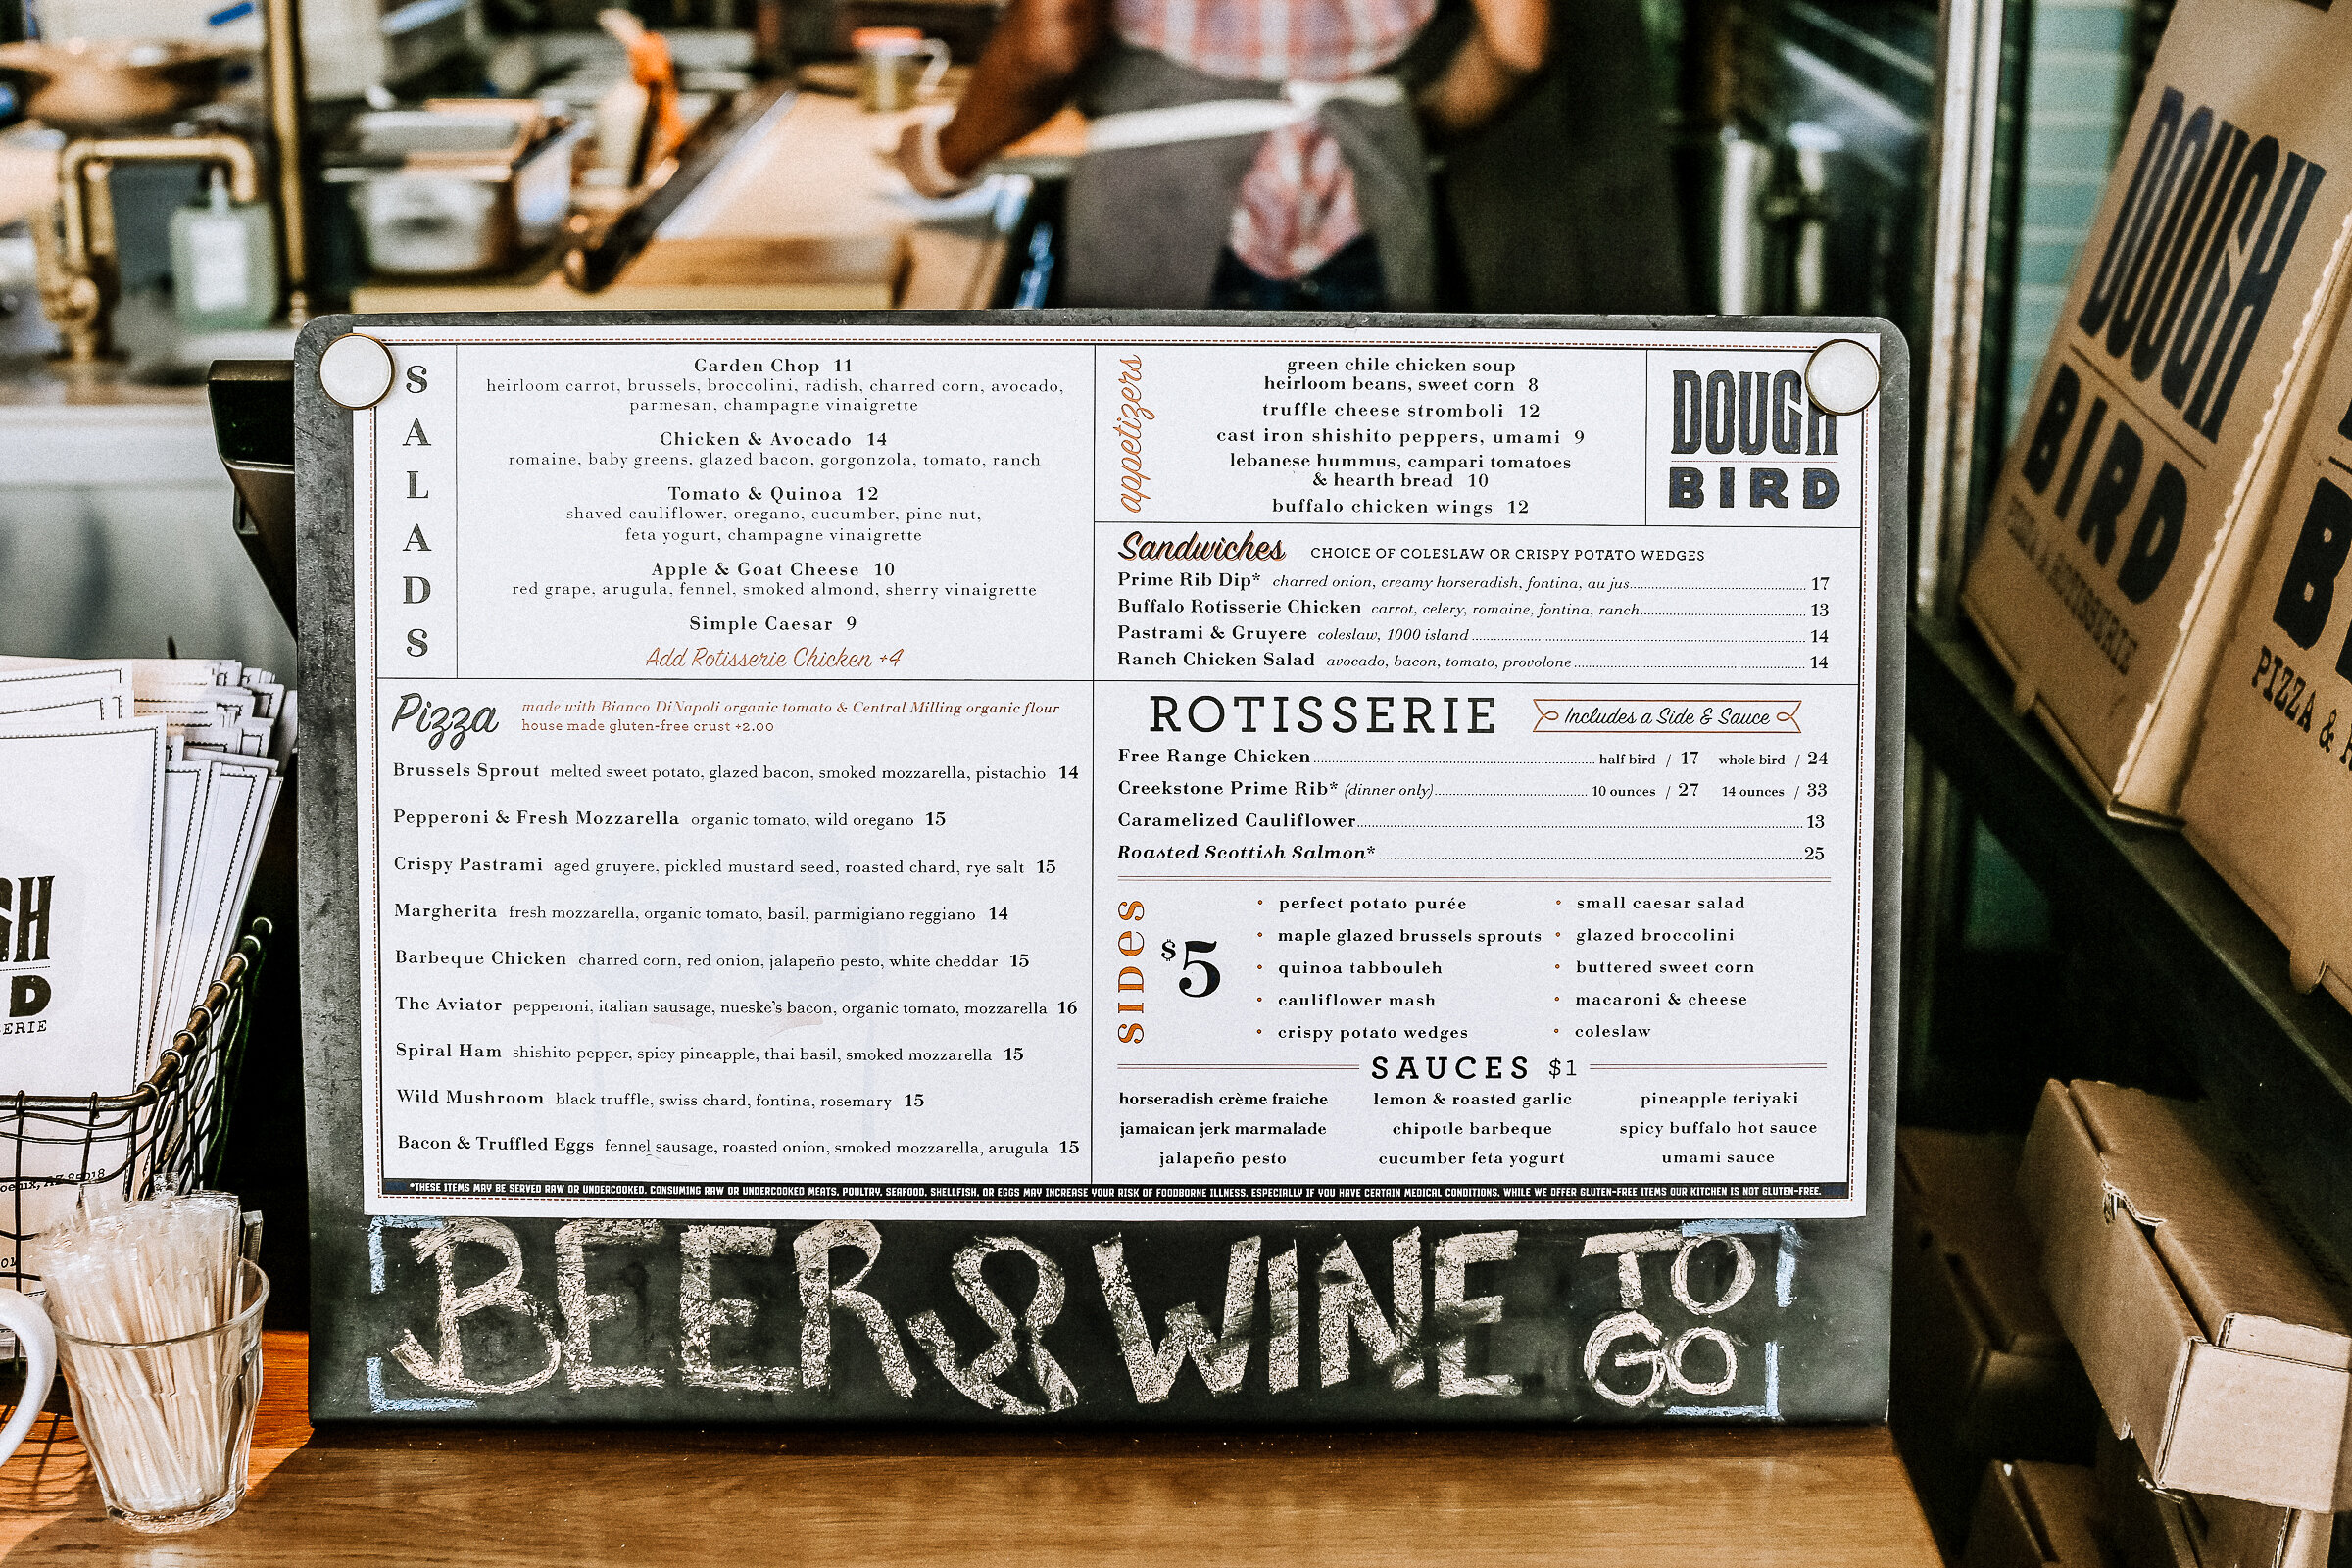 SALADS
Garden Chop 11
heirloom carrot, brussels, broccolini, radish, charred corn, avocado,
parmesan, champagne vinaigrette
Chicken & Avocado 14
romaine, baby greens, glazed bacon, gorgonzola, tomato, ranch
Tomato & Quinoa 12
shaved cauliflower, oregano, cucumber, pine nut,
feta yogurt, champagne vinaigrette
Apple & Goat Cheese 10
red grape, arugula, fennel, smoked almond, sherry vinaigrette
Simple Caesar 9
Add Rotisserie Chicken +4
Pizza
made with Bianco DiNapoli organic tomato & Central Milling organic flour
house made gluten-free crust +2.00
Brussels Sprout melted sweet potato, glazed bacon, smoked mozzarella, pistachio 14
Pepperoni & Fresh Mozzarella organic tomato, wild oregano 15
Crispy Pastrami aged gruyere, pickled mustard seed, roasted chard, rye salt 15
Margherita fresh mozzarella, organic tomato, basil, parmigiano reggiano 14
Barbeque Chicken charred corn, red onion, jalapeño pesto, white cheddar 15
The Aviator pepperoni, italian sausage, nueske's bacon, organic tomato, mozzarella 16
Spiral Ham shishito pepper, spicy pineapple, thai basil, smoked mozzarella 15
Wild Mushroom black truffle, swiss chard, fontina, rosemary 15
Bacon & Truffled Eggs fennel sausage, roasted onion, smoked mozzarella, arugula 15
appetizers
green chile chicken soup
heirloom beans, sweet corn 8
truffle cheese stromboli 12
cast iron shishito peppers, umami 9
lebanese hummus, campari tomatoes
& hearth bread 10
buffalo chicken wings 12
DOUGH
BIRD
Sandwiches CHOICE OF COLESLAW OR CRISPY POTATO WEDGES
Prime Rib Dip* charred onion, creamy horseradish, fontina, au jus 17
Buffalo Rotisserie Chicken carrot, celery, romaine, fontina, ranch 13
Pastrami & Gruyere coleslaw, 1000 island 14
Ranch Chicken Salad avocado, bacon, tomato, provolone 14
ROTISSERIE Includes a Side & Sauce
Free Range Chicken half bird / 17 whole bird / 24
Creekstone Prime Rib* (dinner only) 10 ounces / 27 14 ounces / 33
Caramelized Cauliflower 13
Roasted Scottish Salmon* 25
SIDes $5
perfect potato purée
maple glazed brussels sprouts
quinoa tabbouleh
cauliflower mash
crispy potato wedges
small caesar salad
glazed broccolini
buttered sweet corn
macaroni & cheese
coleslaw
SAUCES $1
horseradish crème fraiche
jamaican jerk marmalade
jalapeño pesto
lemon & roasted garlic
chipotle barbeque
cucumber feta yogurt
pineapple teriyaki
spicy buffalo hot sauce
umami sauce
*THESE ITEMS MAY BE SERVED RAW OR UNDERCOOKED. CONSUMING RAW OR UNDERCOOKED MEATS, POULTRY, SEAFOOD, SHELLFISH, OR EGGS MAY INCREASE YOUR RISK OF FOODBORNE ILLNESS, ESPECIALLY IF YOU HAVE CERTAIN MEDICAL CONDITIONS. WHILE WE OFFER GLUTEN-FREE ITEMS OUR KITCHEN IS NOT GLUTEN-FREE.
BEER & WINE TO GO
DOUGH
BIRD
PIZZA & ROTISSERIE
PIZZA &
GH
D
ERIE
85018